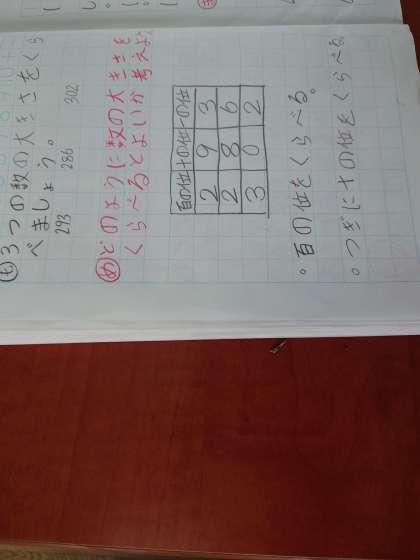 も 3つの数の大きさをくら
べましょう。
293 286 302
め どのように数の大きさを
くらべるとよいか考えよう。
百の位 十の位 一の位
2 9 3
2 8 6
3 0 2
。百の位をくらべる。
。つぎに十の位をくらべる